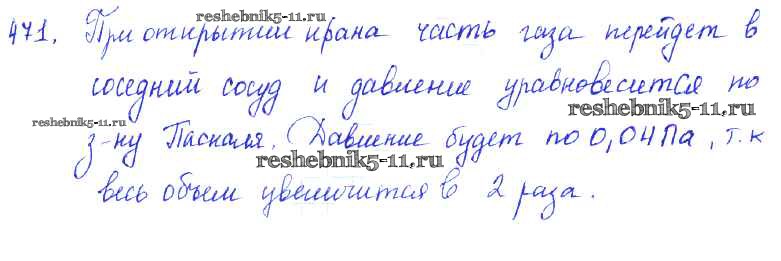 reshebnik5-11.ru
471. При открытии крана часть газа перейдет в
соседний сосуд и давление уравновесится по
reshebnik5-11.ru
reshebnik5-11.ru
з-ну Паскаля. Давление будет по 0,04 Па, т.к
reshebnik5-11.ru
весь объем увеличится в 2 раза.